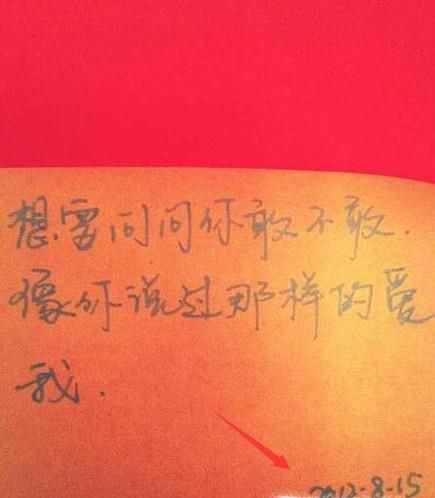 想要问问你敢不敢.
像你说过那样的爱
我.
2013-8-15